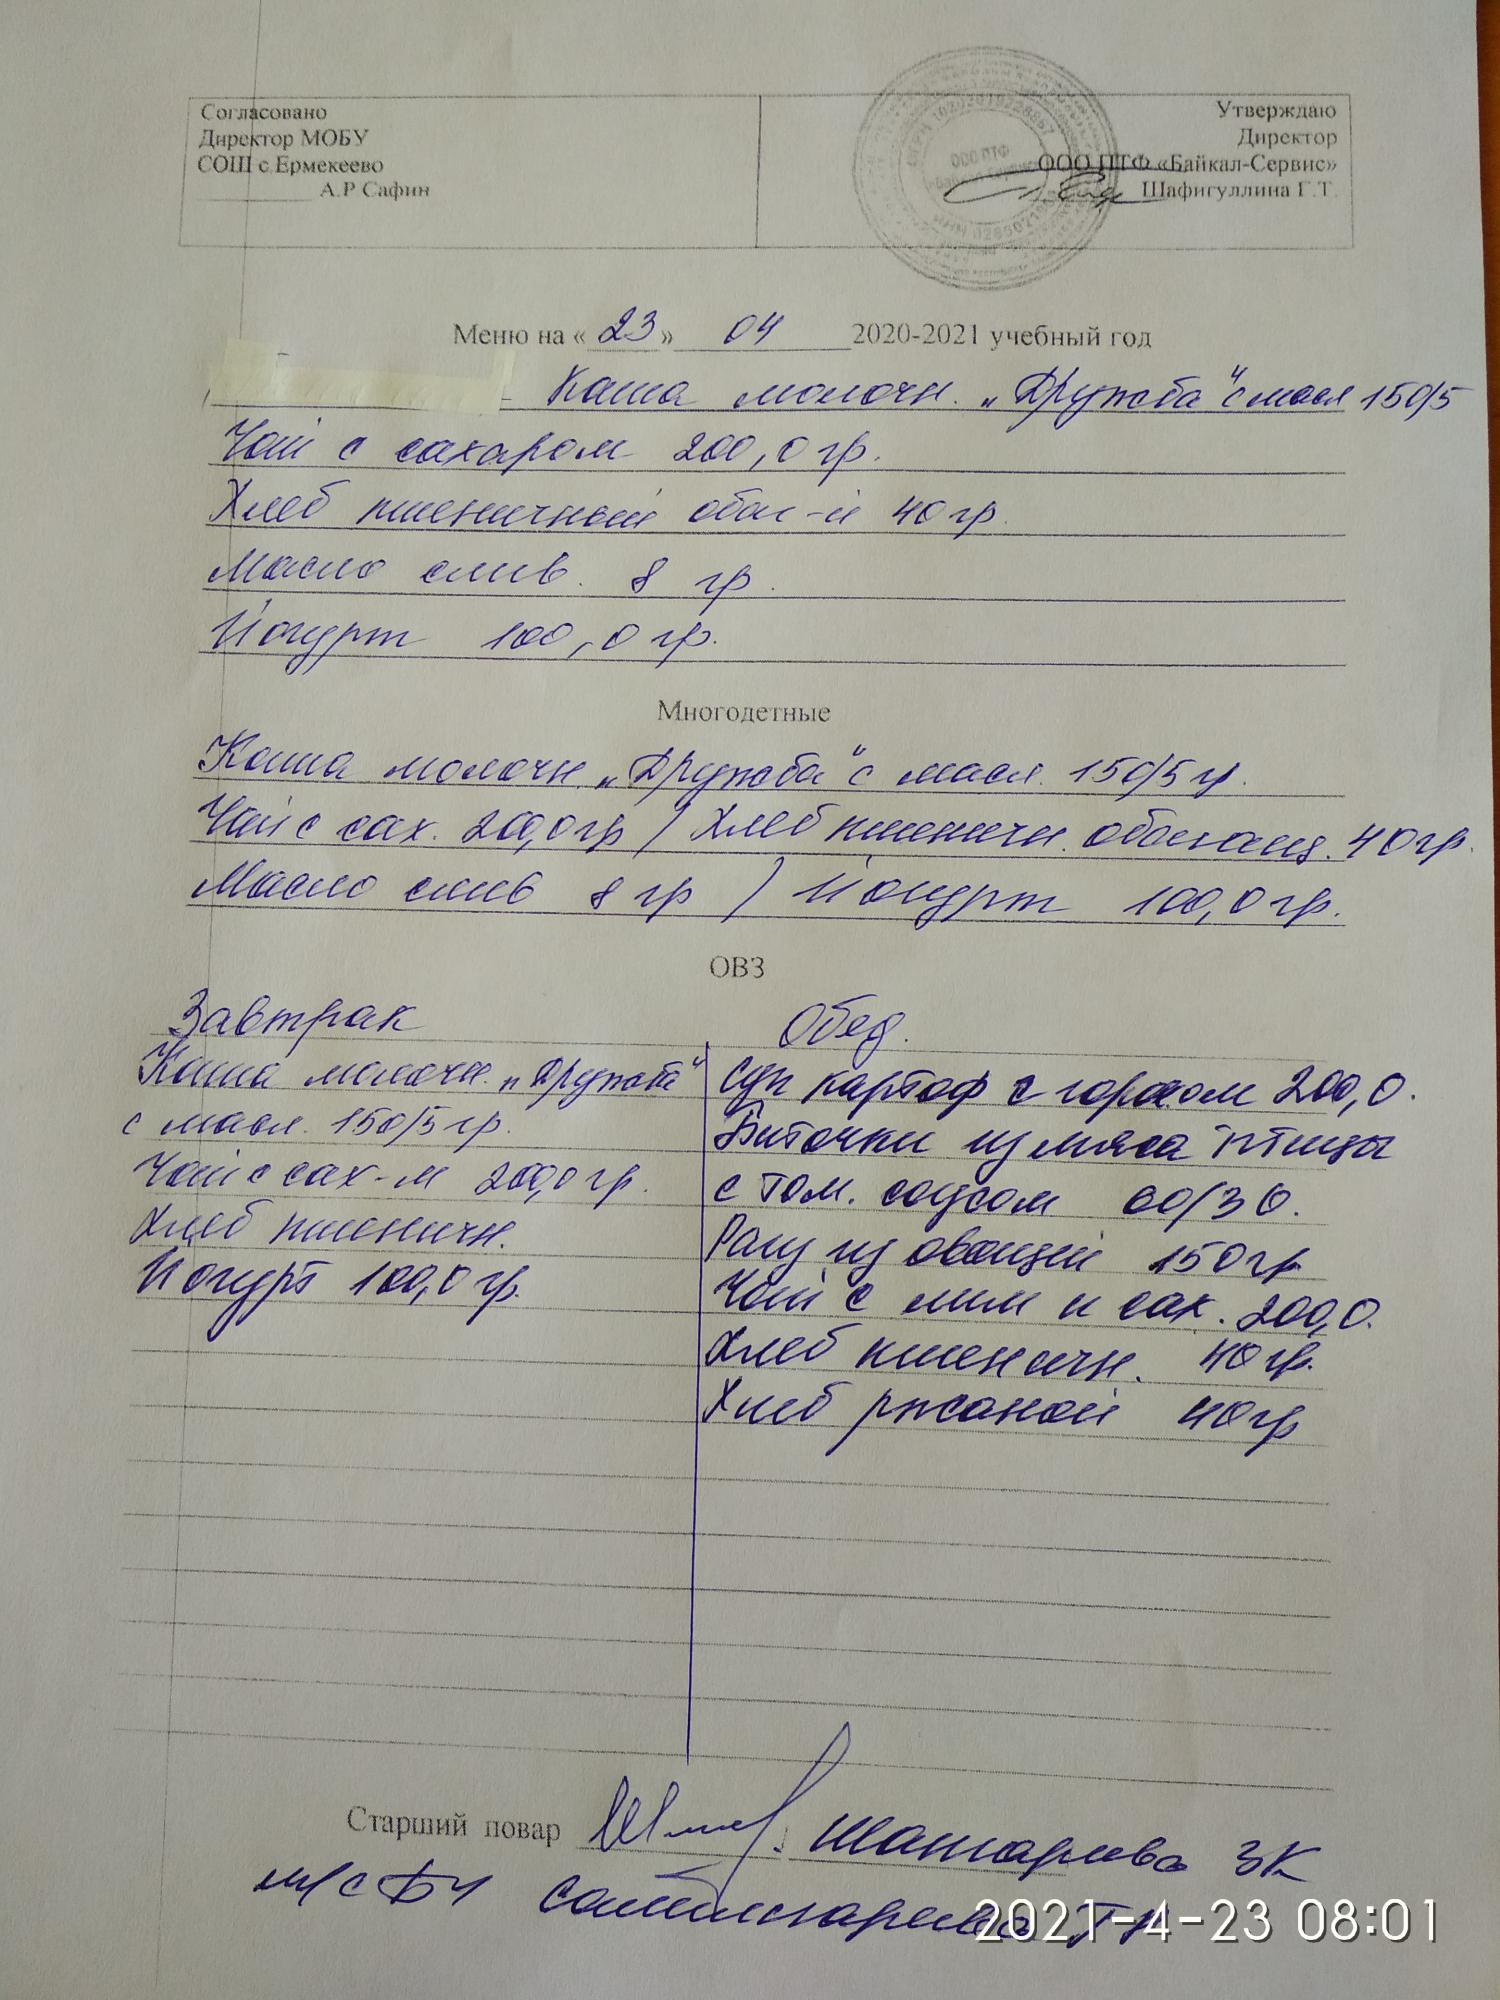 Согласовано
Директор МОБУ
СОШ с Ермекеево
А.Р Сафин
Утверждаю
Директор
ООО ПТФ «Байкал-Сервис»
Шафигуллина Г.Т.
ООО ПТФ
Меню на « 23 » 04 2020-2021 учебный год
Каша молочн. „Дружба“ с масл 150/5
Чай с сахаром 200,0 гр.
Хлеб пшеничный обог-й 40 гр.
Масло слив. 8 гр.
Йогурт 100,0 гр.
Многодетные
Каша молочн. „Дружба“ с масл. 150/5 гр.
Чай с сах. 200,0 гр / Хлеб пшеничн. обогащ. 40 гр.
Масло слив 8 гр / Йогурт 100,0 гр.
ОВЗ
Завтрак
Каша молочн. „Дружба“
с масл. 150/5 гр.
Чай с сах-м 200,0 гр.
Хлеб пшеничн.
Йогурт 100,0 гр.
Обед.
Суп картоф с горохом 200,0.
Биточки из мяса птицы
с том. соусом 60/30.
Рагу из овощей 150 гр
Чай с лим и сах. 200,0.
Хлеб пшеничн. 40 гр.
Хлеб ржаной 40 гр
Старший повар ЗК
м/с
2021-4-23 08:01